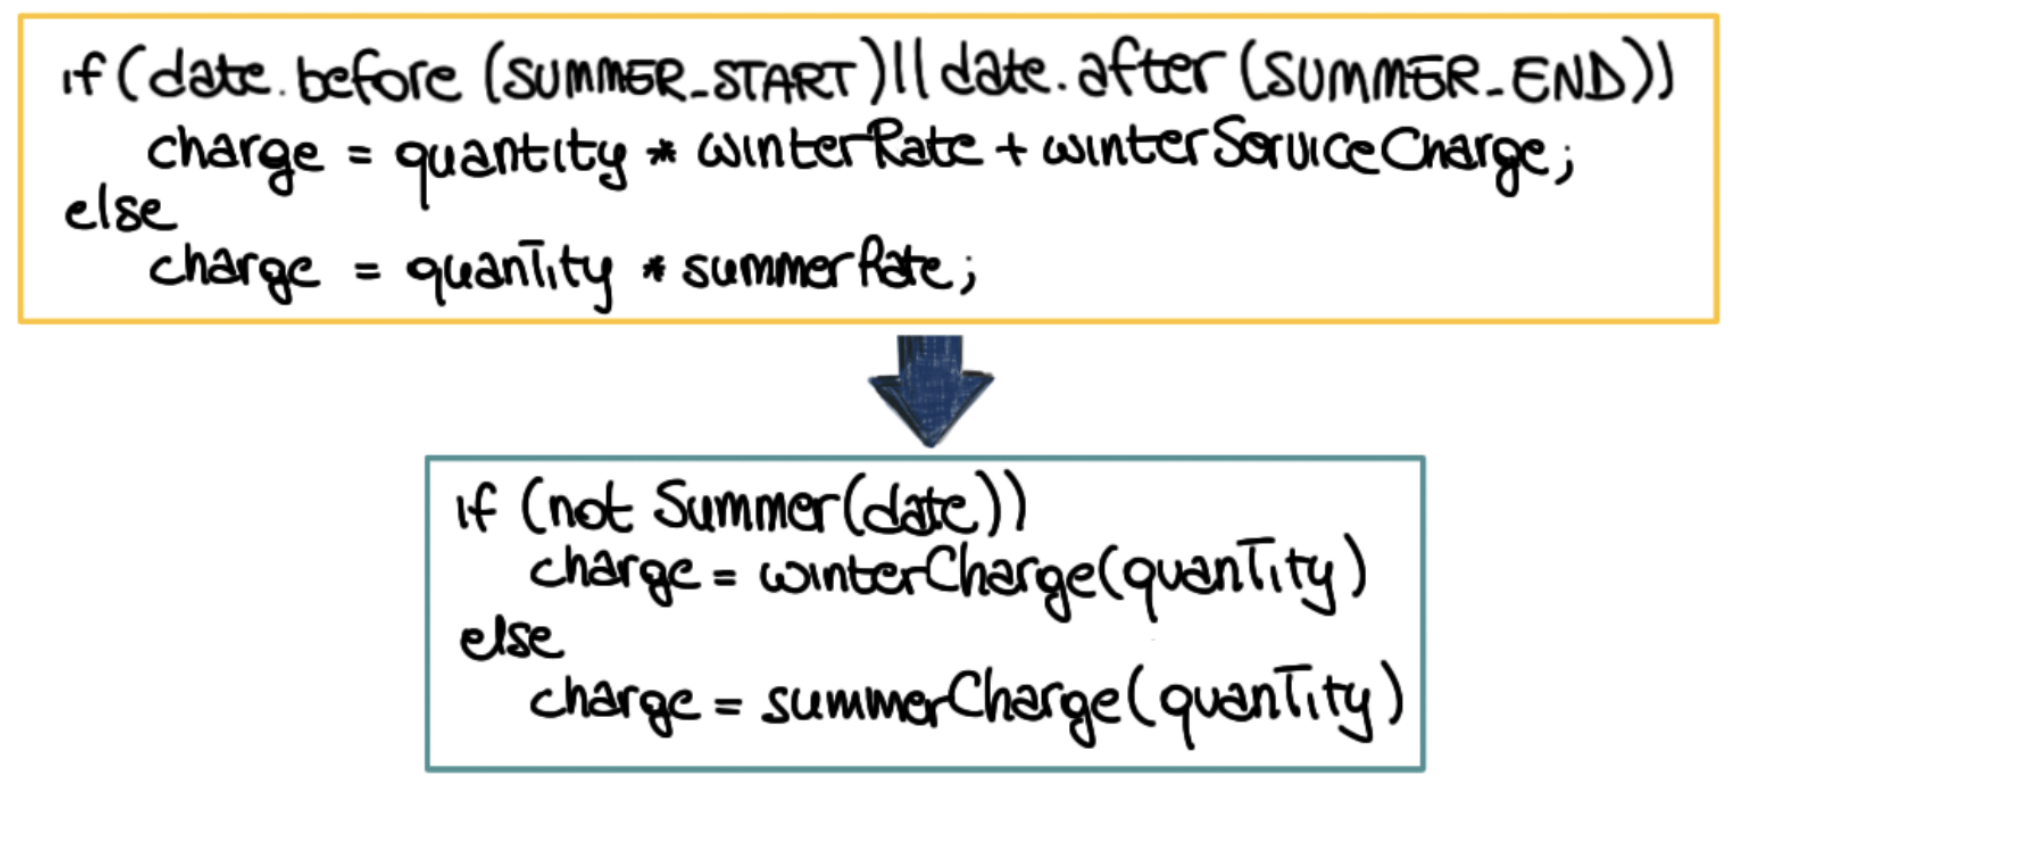 if (date.before (SUMMER_START)|| date.after (SUMMER_END))
charge = quantity * winterRate + winterServiceCharge;
else
charge = quantity * summerRate;
if (not Summer(date))
charge = winterCharge(quantity)
else
charge = summerCharge(quantity)